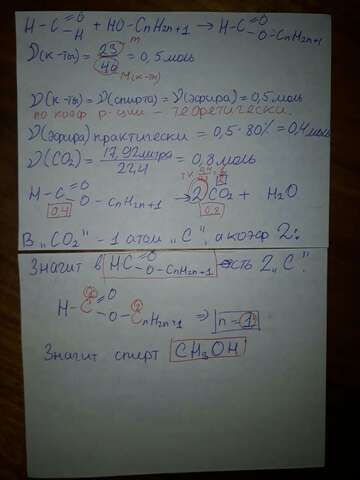 H-C=O H + HO-CnH2n+1 → H-C=O O-CnH2n+1
m
ν(к-ты) = 23/46 = 0,5 моль
M(к-ты)
ν(к-ты) = ν(спирта) = ν(эфира) = 0,5 моль
по коэф р-ции - теоретически.
ν(эфира) практически = 0,5 · 80% = 0,4 моль
ν(CO2) = 17,92 литра/22,4 = 0,8 моль
H-C=O O-CnH2n+1 → 2CO2 + H2O
0,4 0,8
В "CO2" - 1 атом "C", а коэф 2.
Значит в HC=O O-CnH2n+1 есть 2 "C".
H-C=O O-CnH2n+1 ⇒ n=1
Значит спирт CH3OH